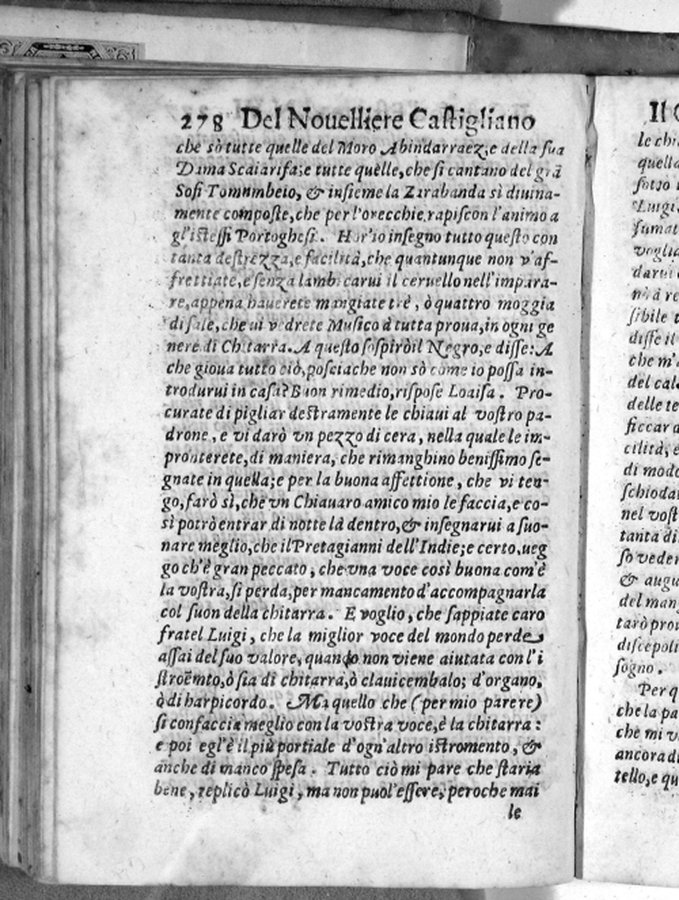 278 Del Nouelliere Castigliano
che sò tutte quelle del Moro Abindarraez, e della sua
Dama Scaiarifa; e tutte quelle, che si cantano del grã
Sofi Tomumbeio, & insieme la Zarabanda sì diuina-
mente composte, che per l'orecchie, rapiscon l'animo a
gl'istessi Portoghesi. Hor'io insegno tutto questo con
tanta destrezza, e facilità, che quantunque non v'af-
frettiate, e senza lambicarui il ceruello nell'impara-
re, appena hauerete mangiate trè, ò quattro moggia
di sale, che ui vedrete Musico à tutta proua, in ogni ge
nere di Chitarra. A questo sospirò il Negro, e disse: A
che gioua tutto ciò, posciache non sò come io possa in-
trodurui in casa? Buon rimedio, rispose Loaisa. Pro-
curate di pigliar destramente le chiaui al vostro pa-
drone, e vi darò vn pezzo di cera, nella quale le im-
pronterete, di maniera, che rimanghino benissimo se-
gnate in quella; e per la buona affettione, che vi ten-
go, farò sì, che vn Chiauaro amico mio le faccia, e co-
sì potrò entrar di notte là dentro, & insegnarui a suo-
nare meglio, che il Pretagianni dell'Indie; e certo, ueg
go ch'è gran peccato, che vna voce così buona com'è
la vostra, si perda, per mancamento d'accompagnarla
col suon della chitarra. E voglio, che sappiate caro
fratel Luigi, che la miglior voce del mondo perde
assai del suo valore, quando non viene aiutata con l'i
stroẽmto, ò sia di chitarra, ò clauicembalo; d'organo,
ò di harpicordo. Ma quello che (per mio parere)
si confaccia meglio con la vostra voce, è la chitarra:
e poi egl'è il più portiale d'ogn'altro istromento, &
anche di manco spesa. Tutto ciò mi pare che staria
bene, replicò Luigi, ma non puol'essere, peroche mai
le
Il
le chia
quella
sotto
Luigi
fumat
voglia
darui
sibile
disse il
che m'a
del cal
delle te
ficcar
cilità, e
di modo
schioda
nel vost
tanta di
so veder
& augu
del mang
tarò prou
discepoli
sogno.
Per q
che la pa
che mi v
ancora di
tello, e qu